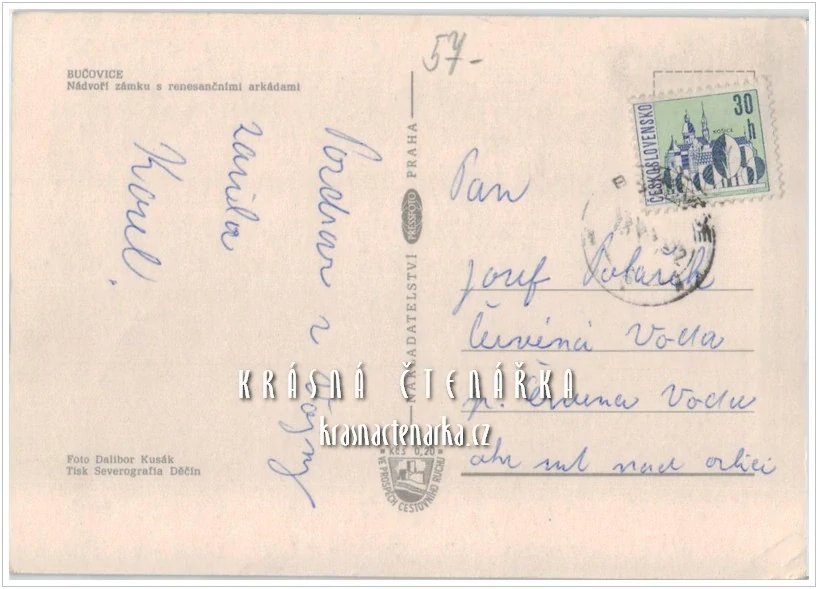 57-
BUČOVICE
Nádvoří zámku s renesančními arkádami
Pozdrav z
zasílá
Karel.
NAKLADATELSTVÍ PRESSFOTO PRAHA
ČESKOSLOVENSKO
30 h
KOŠICE
Pan
Josef Polášek
Červená Voda
p. Červená Voda
okr. nad orlicí
KRÁSNÁ ČTENÁŘKA
krasnactenarka.cz
Kčs 0,20
VE PROSPĚCH CESTOVNÍHO RUCHU
Foto Dalibor Kusák
Tisk Severografia Děčín